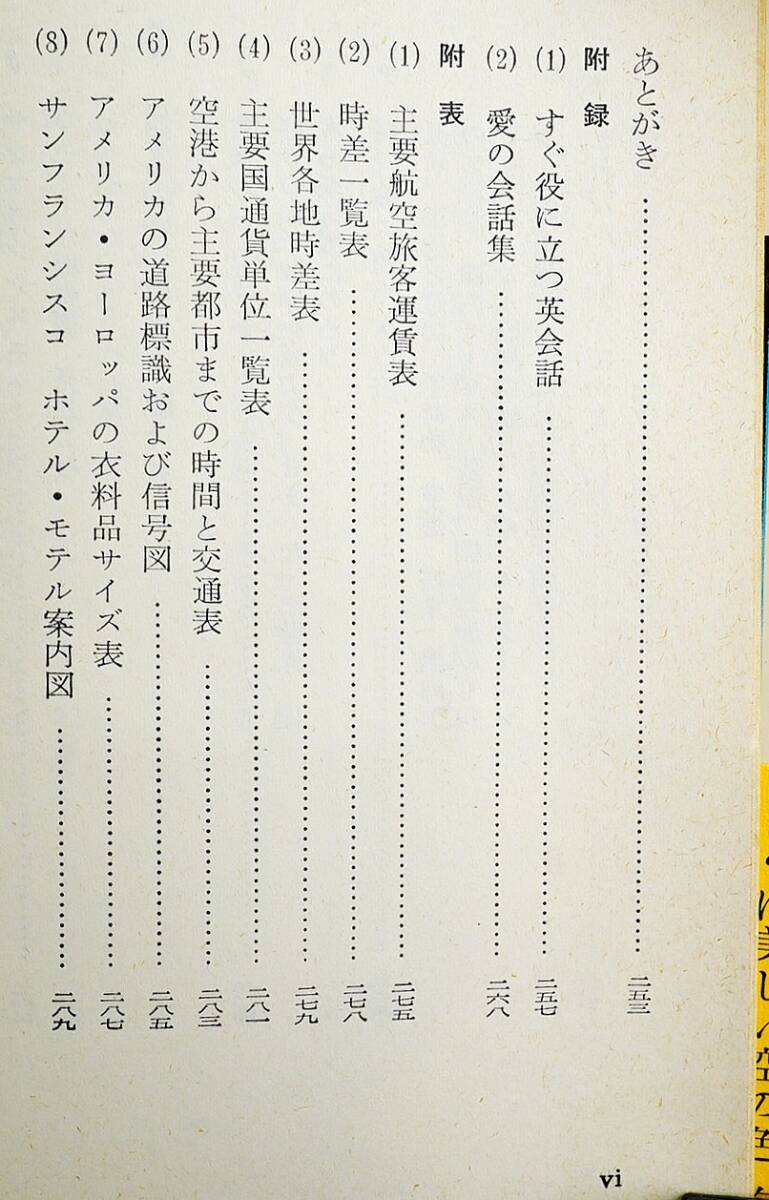 あとがき……………………二五三
附録
(1) すぐ役に立つ英会話……………………二五七
(2) 愛の会話集……………………二六八
附表
(1) 主要航空旅客運賃表……………………二七五
(2) 時差一覧表……………………二七八
(3) 世界各地時差表……………………二七九
(4) 主要国通貨単位一覧表……………………二八一
(5) 空港から主要都市までの時間と交通表……………………二八三
(6) アメリカの道路標識および信号図……………………二八五
(7) アメリカ・ヨーロッパの衣料品サイズ表……………………二八七
(8) サンフランシスコ ホテル・モテル案内図……………………二八九
vi